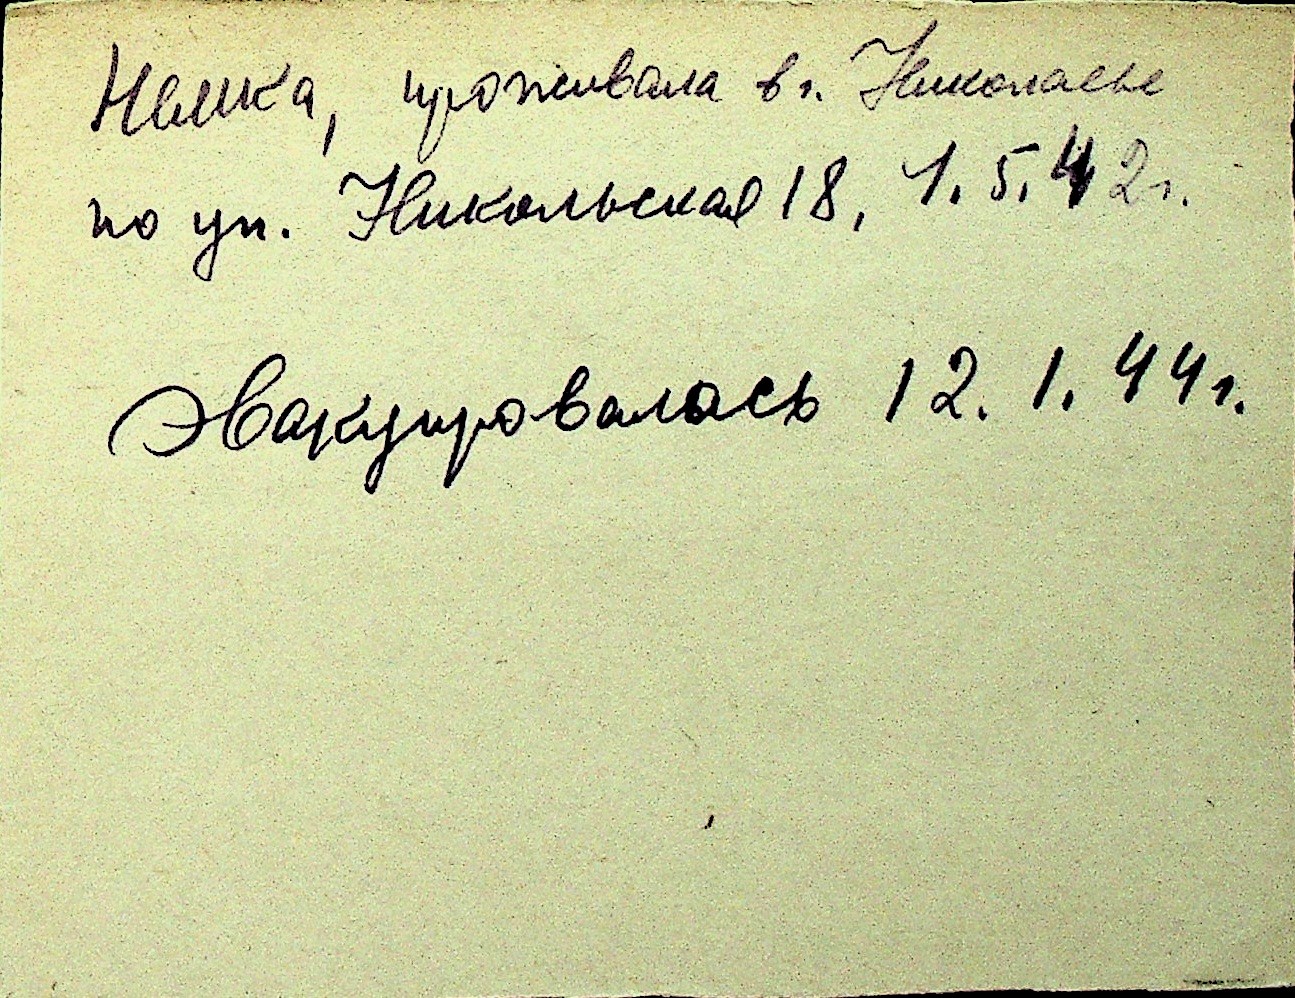 Немка, проживала в г. Николаеве
по ул. Никольская 18, 1.5.42г.
Эвакуировалась 12.1.44г.